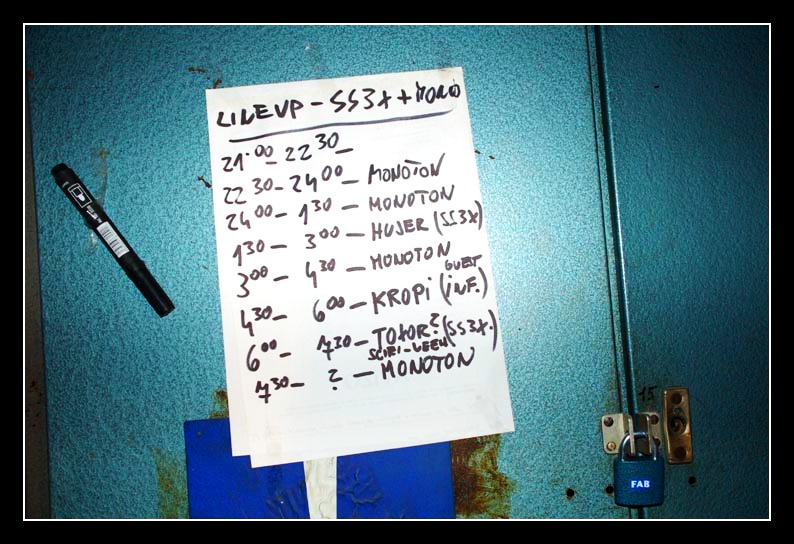 LINEUP - SS3X + MONO
21.00 - 22 30 -
22 30 - 24 00 - MONOTON
24 00 - 1 30 - MONOTON
1 30 - 3 00 - HUJER (SS3X)
3 00 - 4 30 - MONOTON
4 30 - 6 00 - KROPI (INF.) GUEST
6 00 - 7 30 - TOXOR? (SS3X.)
7 30 - ? - MONOTON
15
FAB